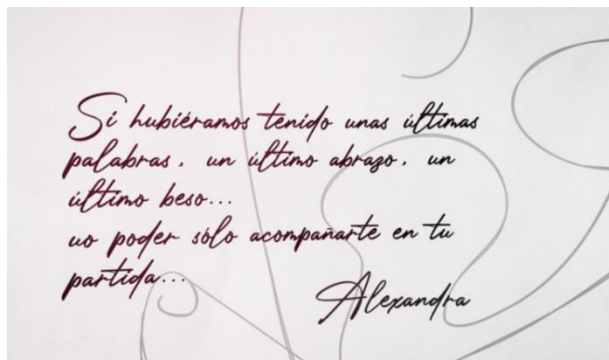 Si hubiéramos tenido unas últimas
palabras, un último abrazo, un
último beso...
uo poder sólo acompañarte en tu
partida...
Alexandra